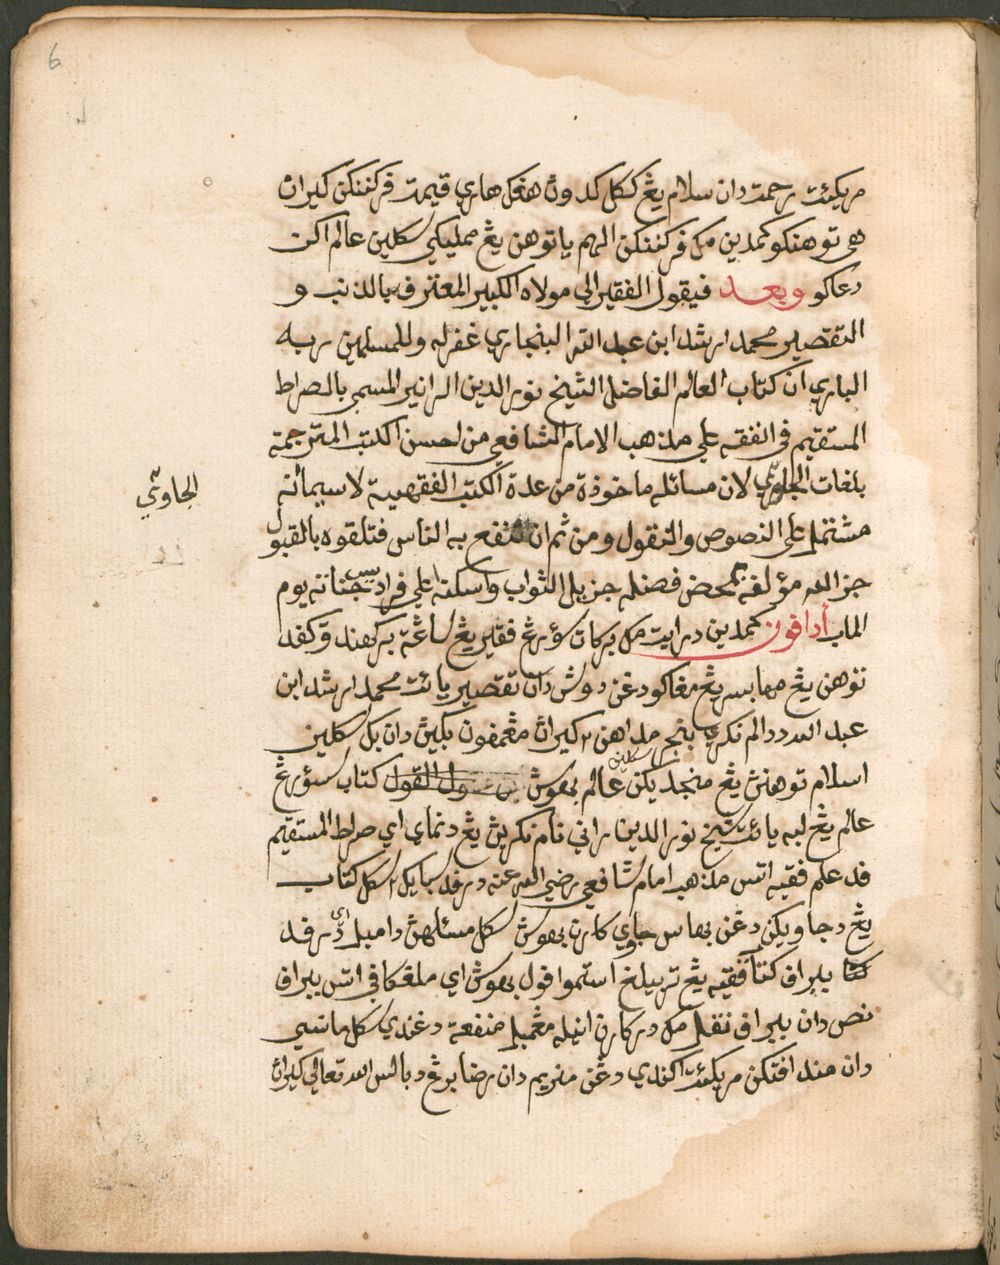 6
مريكئت رحمة دان سلام يڠ ككل كدوڽ هڠڬ هاري قيمة فركننكن كيراڽ
هي توهنكو كمدين مك فركننكن اللهم يا توهن يڠ مملكي سكلين عالم اكن
دعاكو وبعد فيقول الفقير الي مولاه الكبير المعترف بالذنب و
التقصير محمد ارشد ابن عبد الله البنجاري غفر له وللمسلمين ربه
الباري ان كتاب العالم الفاضل الشيخ نور الدين الرانير المسمي بالصراط
المستقيم في الفقه علي مذهب الامام الشافعي من احسن الكتب المترجمة
بلغات الجاوي لان مسائله ماخوذة من عدة الكتب الفقهية لا سيما انه
الجاويّي
مشتمل علي النصوص والنقول ومن ثم انتفع به الناس فتلقوه بالقبول
جز الله مؤلفه بمحض فضله جزيل الثواب واسكنه اعلي فراديس جناته يوم
الماب أدافون كمدين درايت مك بركات سؤرڠ فقير يڠ ساڠة بركهندق كفد
توهن يڠ مها بسر يڠ مڠاكو دڠن دوش دان تقصير يائت محمد ارشد ابن
عبد الله ددالم نكري بنجر مداهن٢ كيراڽ مڠمفون بكيڽ دان بكي سكلين
اسلام توهنڽ يڠ منجديكن سكلين عالم بهوس القول كتاب سؤرڠ
عالم يڠ لبه يائت شيخ نور الدين راني نام نكريڽ يڠ دنماي اي صراط المستقيم
فد علم فقيه اتس مذهب امام شافعي رضي الله عنه درفد سبايك٢ سكل كتاب
يڠ دجاويكن دڠن بهاس جاوي كارن بهوس سكل مسئلهڽ دامبل اي درفد
ببراف كتاب فقيه يڠ تربيلڠ استموا فول بهوس اي ملڠكافي اتس ببراف
نص دان ببراف نقل مك دركارن ايتله مڠمبل منفعة دڠندي سكل مانسي
دان منداڤتكن مريكئت اكندي دڠن منريم دان رضا برڠ دبالس الله تعالي كيراڽ